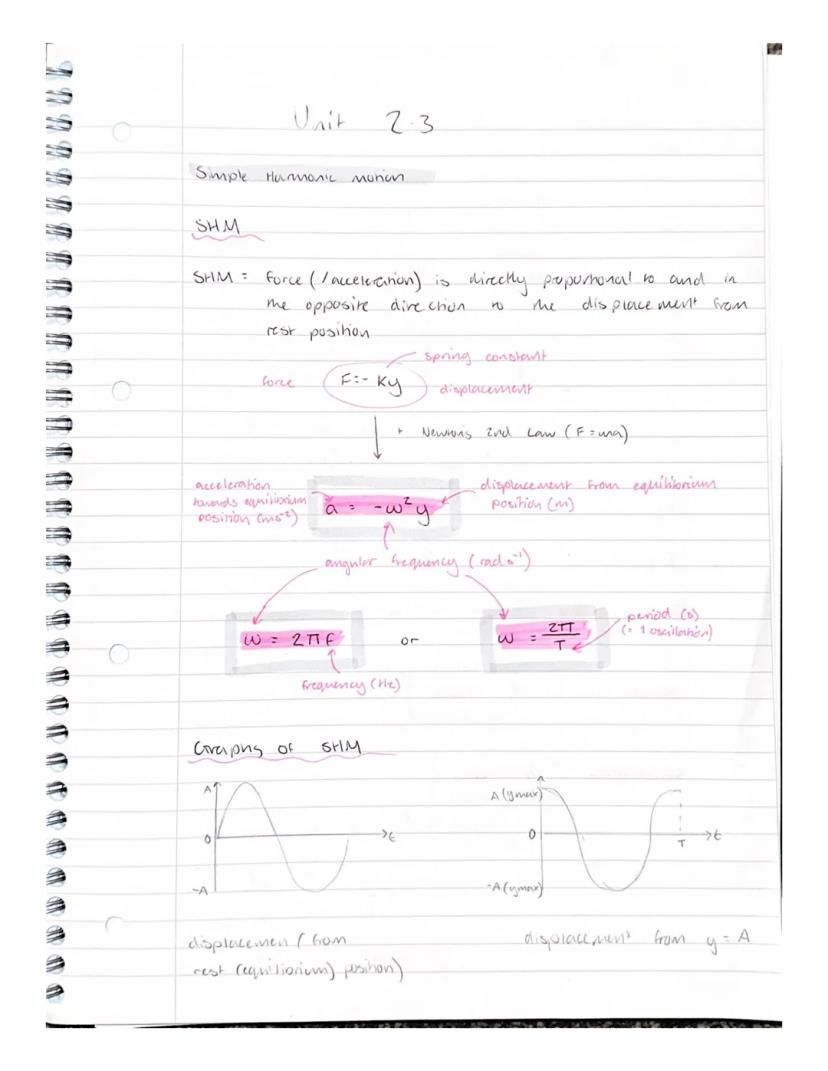 Unit 2.3
Simple Harmonic motion
SHM
SHM = Force (/acceleration) is directly proportional to and in
the opposite direction to the displacement from
rest position
spring constant
force F = - Ky displacement
+ Newtons 2nd Law (F = ma)
acceleration towards equilibrium position (ms⁻²)
a = -ω²y
displacement from equilibrium position (m)
angular frequency (rad s⁻¹)
ω = 2πf or ω = 2π/T
period (s) (= 1 oscillation)
frequency (Hz)
Graphs of SHM
A
0
-A
t
A (ymax)
0
-A (ymax)
T
t
displacement (from
rest (equilibrium) position)
displacement from y = A